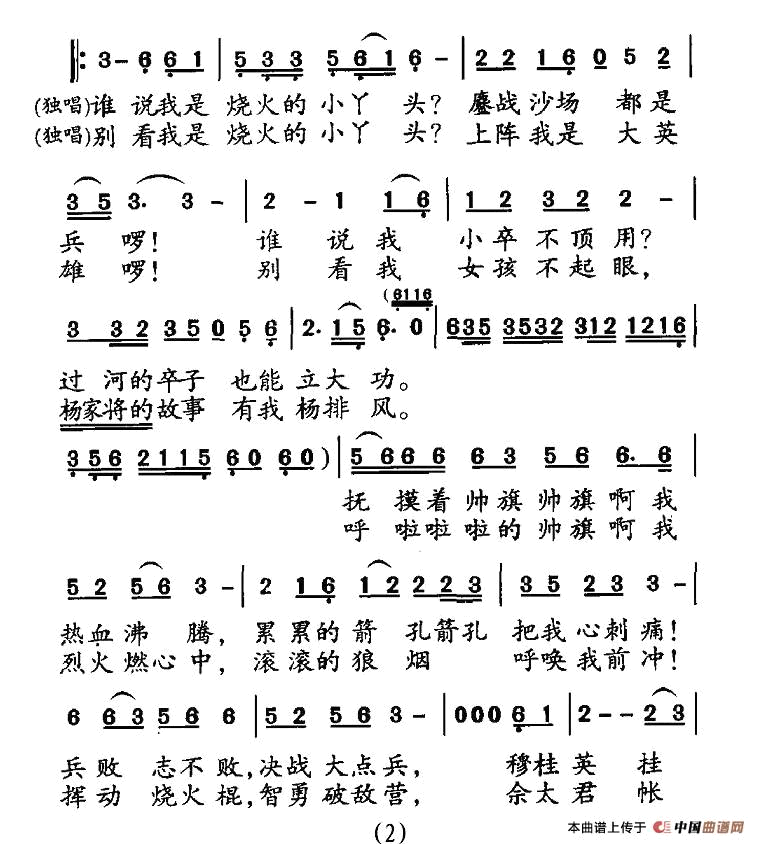 3 - 6 6 1 | 5 3 3 5 6 1 6 - | 2 2 1 6 0 5 2 |
(独唱)谁 说我是 烧火的 小丫 头? 鏖战沙场 都是
(独唱)别 看我是 烧火的 小丫 头? 上阵我是 大英
3 5 3. 3 - | 2 - 1 1 6 | 1 2 3 2 2 - |
兵 啰! 谁 说 我 小卒不顶用?
雄 啰! 别 看 我 女孩不起眼,
(6116
3 3 2 3 5 0 5 6 | 2. 1 5 6. 0 | 635 3532 312 1216 |
过 河的卒子 也能立大 功。
杨家将的故事 有我杨排 风。
3 5 6 2 1 1 5 6 0 6 0 ) | 5 6 6 6 6 3 5 6 6. 6 |
抚 摸着帅旗帅旗啊我
呼 啦啦啦的帅旗啊我
5 2 5 6 3 - | 2 1 6 1 2 2 2 3 | 3 5 2 3 3 - |
热血沸 腾, 累累的箭 孔箭孔 把我心刺痛!
烈火燃心中, 滚滚的狼 烟 呼唤我前冲!
6 6 3 5 6 6 | 5 2 5 6 3 - | 0 0 0 6 1 | 2 - - 2 3 |
兵败 志不败,决战大点兵, 穆桂英 挂
挥动 烧火棍,智勇破敌营, 佘太君 帐
(2)
本曲谱上传于 中国曲谱网